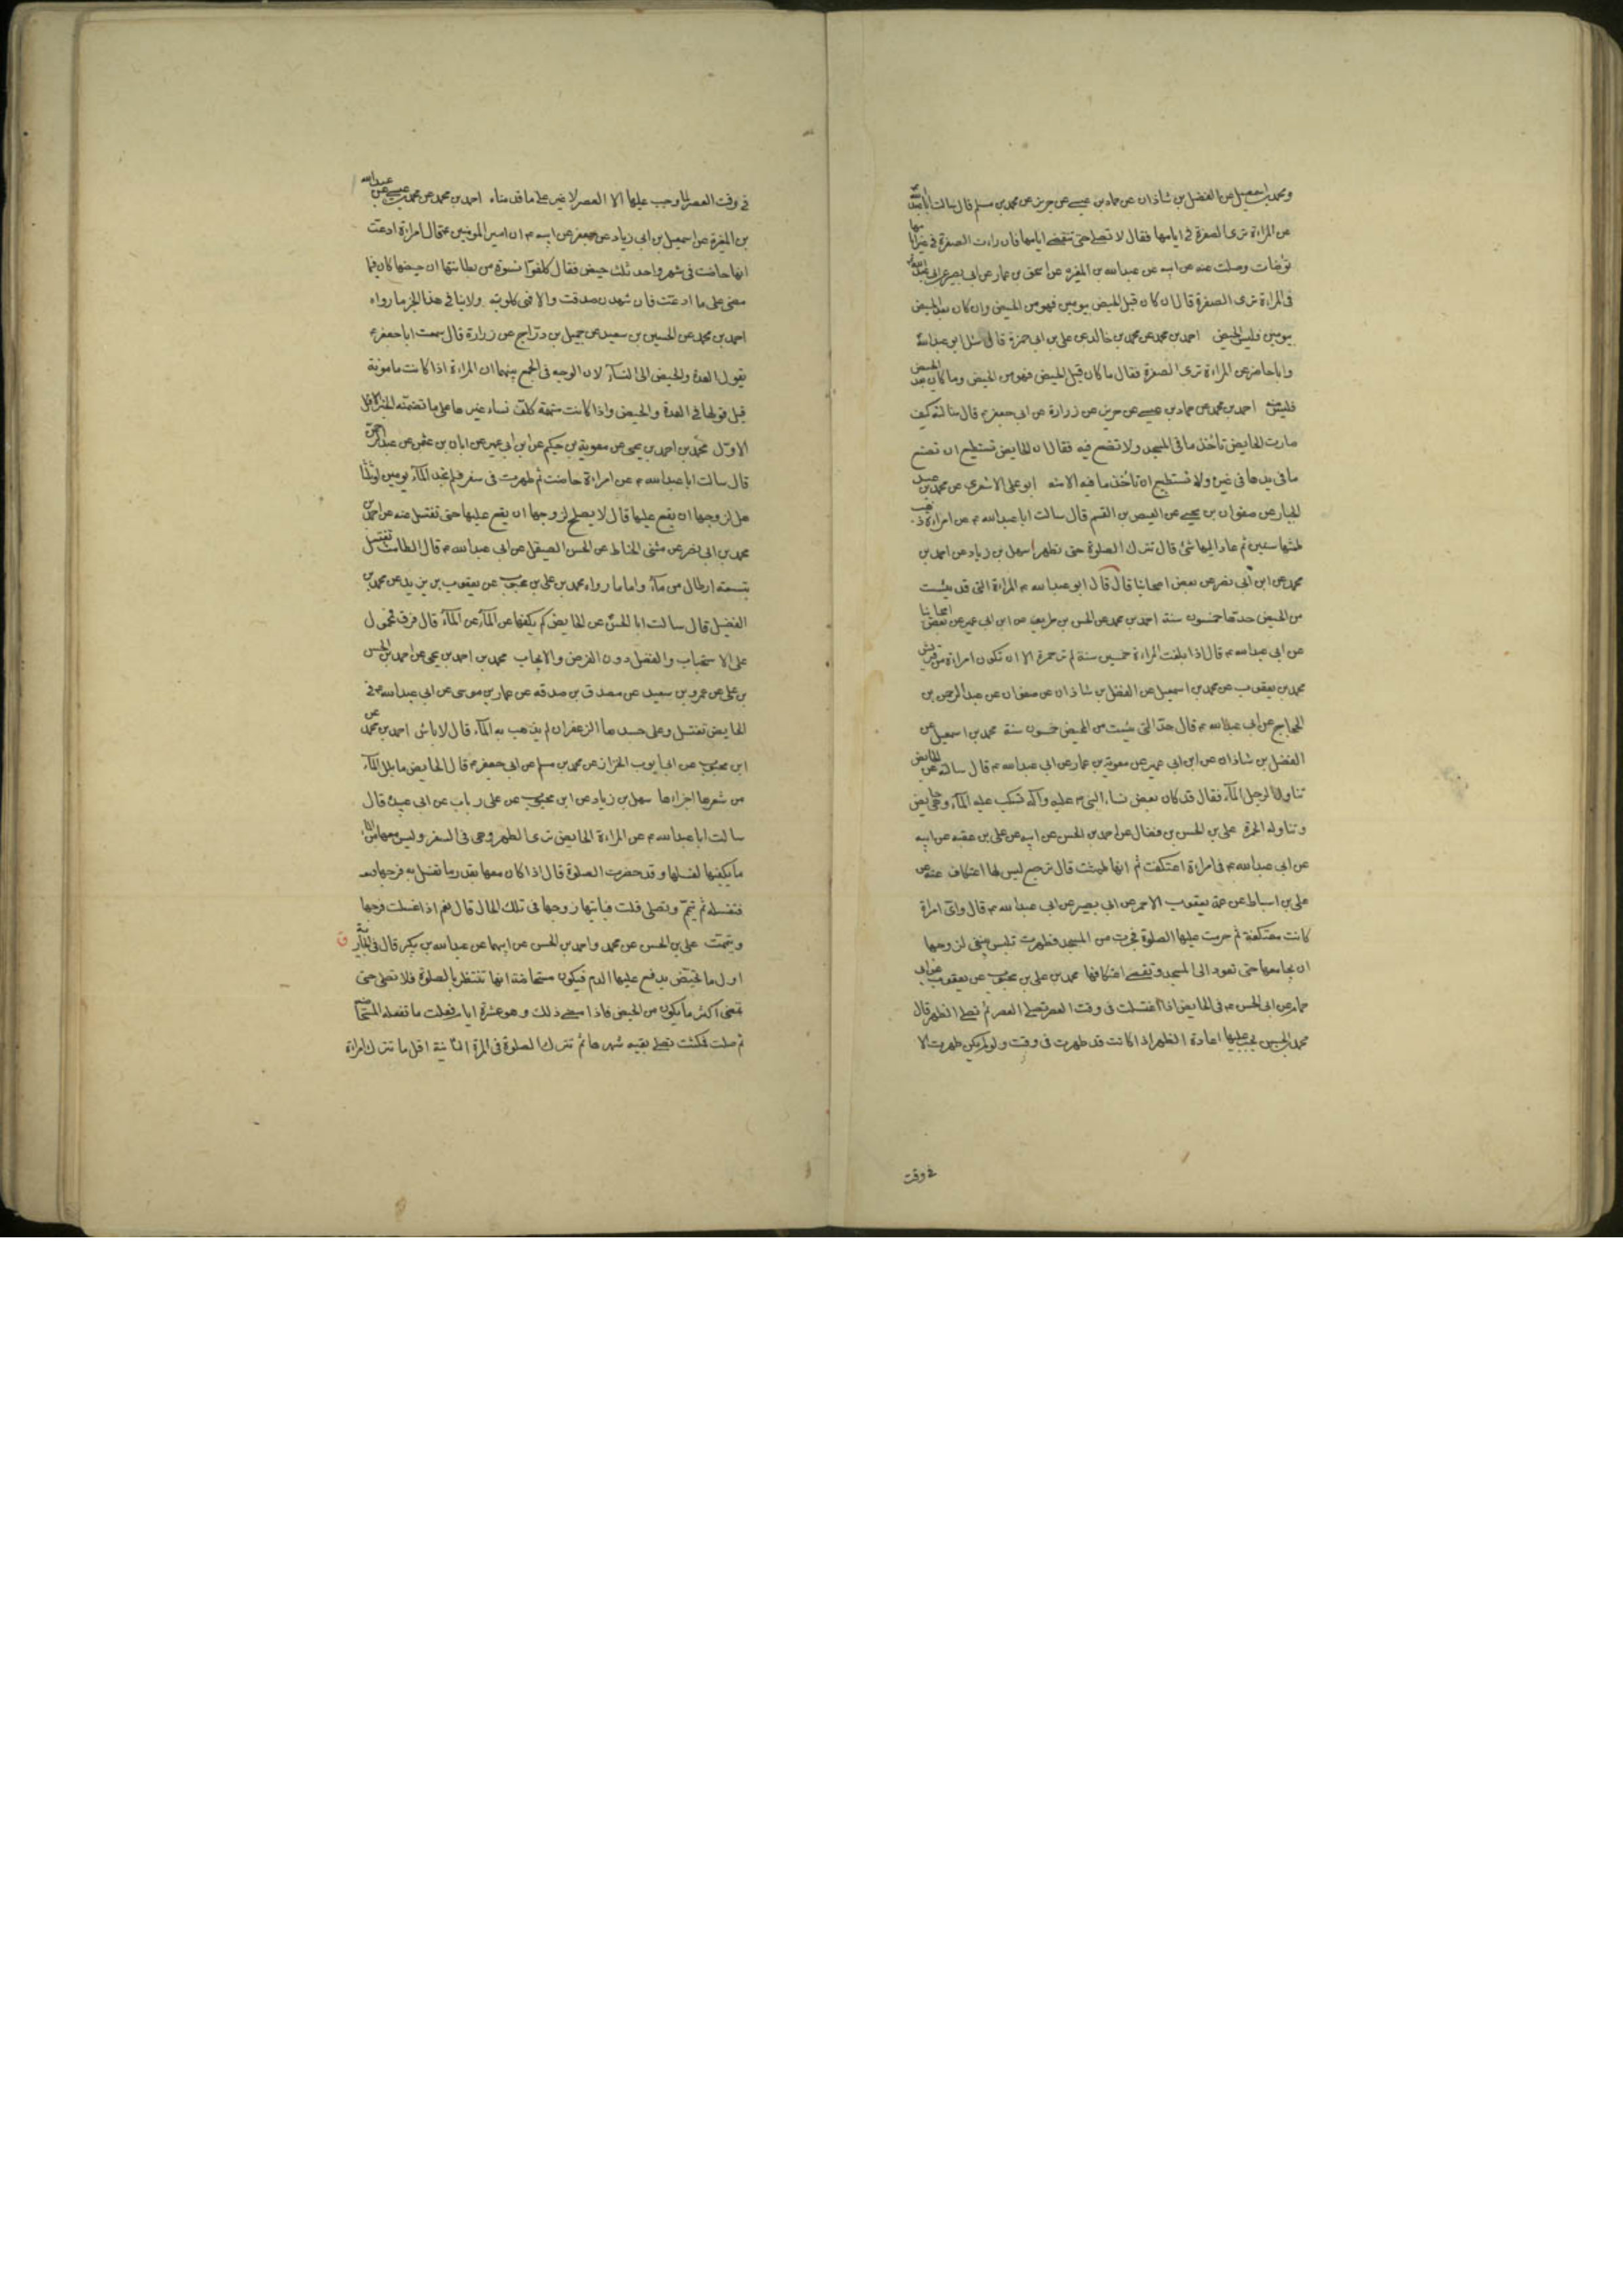 ومحمد بن اسمعيل عن الفضل بن شاذان عن حماد بن عيسى عن حريز عن محمد بن مسلم قال سالت ابا عبدالله
عن المراءة ترى الصفرة في ايامها فقال لا تصلى حتى تنقضى ايامها فان راءت الصفرة في غير ايامها
توضات وصلت عنه عن ابيه عن عبدالله بن المغيرة عن اسحق بن عمار عن ابي بصير عن ابي عبدالله
فى المراءة ترى الصفرة قال ان كان قبل الحيض بيومين فهو من الحيض وان كان بعد الحيض
بيومين فليس من الحيض احمد بن محمد عن محمد بن خالد عن على بن ابى حمزة قال سئل ابو عبدالله
وانا حاضر عن المراءة ترى الصفرة فقال ما كان قبل الحيض فهو من الحيض وما كان بعد الحيض
فليس منه احمد بن محمد عن حماد بن عيسى عن حريز عن زرارة عن ابى جعفر قال سالته كيف
صارت الحايض تاخذ ما فى المسجد ولا تضع فيه فقال ان الحايض تستطيع ان تضع
ما فى يدها فى غيره ولا تستطيع ان تاخذ ما فيه الا منه ابو على الاشعرى عن محمد بن عبد
الجبار عن صفوان بن يحيى عن العيص بن القسم قال سالت ابا عبدالله عن امراءة ذهب
طمثها سنين ثم عاد اليها شئ قال تترك الصلوة حتى تطهر سهل بن زياد عن احمد بن
محمد عن ابن ابى نصر عن بعض اصحابنا قال قال ابو عبدالله المراءة التى قد يئست
من الحيض حدها خمسون سنة احمد بن محمد عن الحسن بن طريف عن ابن ابى عمير عن بعض اصحابنا
عن ابى عبدالله قال اذا بلغت المراءة خمسين سنة لم تر حمرة الا ان تكون امراءة من قريش
محمد بن يعقوب عن محمد بن اسمعيل عن الفضل بن شاذان عن صفوان عن عبد الرحمن بن
الحجاج عن ابى عبدالله قال حد التى يئست من المحيض خمسون سنة محمد بن اسمعيل عن
الفضل بن شاذان عن ابن ابى عمير عن معوية بن عمار عن ابى عبدالله قال سالته عن الحايض
تناول الرجل الماء فقال قد كان بعض نساء النبى عليه وآله تسكب عليه الماء وهى حايض
وتناوله الخمرة على بن الحسن بن فضال عن احمد بن الحسن عن ابيه عن على بن عقبه عن ابيه
عن ابى عبدالله فى امراءة اعتكفت ثم انها طمثت قال ترجع ليس لها اعتكاف عنه عن
على بن اسباط عن عمه يعقوب الاحمر عن ابى بصير عن ابى عبدالله قال واى امراة
كانت معتكفة ثم حرمت عليها الصلوة فخرجت من المسجد فطهرت فليس ينبغى لزوجها
ان يجامعها حتى تعود الى المسجد وتقضى اعتكافها محمد بن على بن محبوب عن يعقوب عن ابى
همام عن ابى الحسن فى الحايض اذا اغتسلت فى وقت العصر تصلى العصر ثم تصلى الظهر قال
محمد بن الحسن يجب عليها اعادة الظهر اذا كانت قد طهرت فى وقت ولو لم يكن طهرت الا
فى وقت
فى وقت العصر لما وجب عليها الا العصر لا غير على ما قدمناه احمد بن محمد عن محمد بن عيسى عن عبدالله
بن المغيرة عن اسمعيل بن ابى زياد عن جعفر عن ابيه ان امير المومنين قال امراءة ادعت
انها حاضت فى شهر واحد ثلث حيض فقال كلفوا نسوة من بطانتها ان حيضها كان فيما
مضى على ما ادعت فان شهدن صدقت والا فهى كاذبة ولا ينافى هذا الخبر ما رواه
احمد بن محمد عن الحسين بن سعيد عن جميل بن دراج عن زرارة قال سمعت ابا جعفر
يقول العدة والحيض الى النساء لان الوجه فى الجمع بينهما ان المراءة اذا كانت مامونة
قبل قولها فى العدة والحيض واذا كانت متهمة كلف نساء غيرها على ما تضمنه الخبر
الاول محمد بن احمد بن يحيى عن معوية بن حكيم عن ابن ابى عمير عن ابان بن عثمن عن عبد الرحمن
قال سالت ابا عبدالله عن امراءة حاضت ثم طهرت فى سفر فلم تجد الماء يومين او ثلثا
هل لزوجها ان يقع عليها قال لا يصلح لزوجها ان يقع عليها حتى تغتسل عنه عن احمد بن
محمد بن ابى نصر عن مثنى الحناط عن الحسن الصيقل عن ابى عبدالله قال الطامث تغتسل
بتسعة ارطال من ماء واما ما رواه محمد بن على بن محبوب عن يعقوب بن يزيد عن محمد بن
الفضيل قال سالت ابا الحسن عن الحايض كم يكفيها من الماء قال فرق فمحمول
على الاستحباب والفضل دون الفرض والايجاب محمد بن احمد بن يحيى عن احمد بن الحسن
بن على عن عمرو بن سعيد عن مصدق بن صدقه عن عمار بن موسى عن ابى عبدالله فى
الحايض تغتسل وعلى جسدها الزعفران لم يذهب به الماء قال لا باس احمد بن محمد عن
ابن محبوب عن ابى ايوب الخزاز عن محمد بن مسلم عن ابى جعفر قال الحايض ما بلل الماء
من شعرها اجزاءها سهل بن زياد عن ابن محبوب عن على رباب عن ابى عبيدة قال
سالت ابا عبدالله عن المراءة الحايض ترى الطهر وهى فى السفر وليس معها من الماء
ما يكفيها لغسلها وقد حضرت الصلوة قال اذا كان معها بقدر ما تغسل به فرجها
فتغسله ثم تتيمم وتصلى قلت فياتيها زوجها فى تلك الحال قال نعم اذا غسلت فرجها
وتيممت على بن الحسن عن محمد واحمد بن الحسن عن ابيهما عن عبدالله بن بكير قال فى الجارية
اول ما تحيض يدفع عليها الدم فيكون مستحاضة انها تنتظر بالصلوة فلا تصلى حتى
تمضى اكثر ما يكون من الحيض فاذا مضى ذلك وهو عشرة ايام فعلت ما تفعله المستحاضة
ثم صلت فمكثت تصلى بقيه شهرها ثم تترك الصلوة فى المرة الثانية اقل ما تترك امراءة